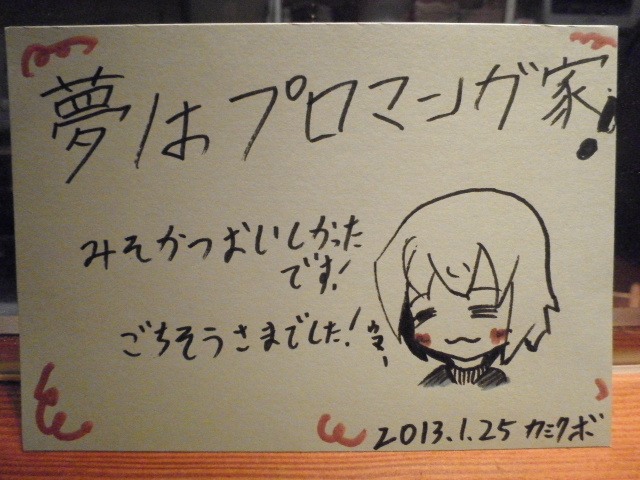 夢はプロマンガ家!
みそかつおいしかった
です!
ごちそうさまでした!
ウマー
2013.1.25 カミクボ